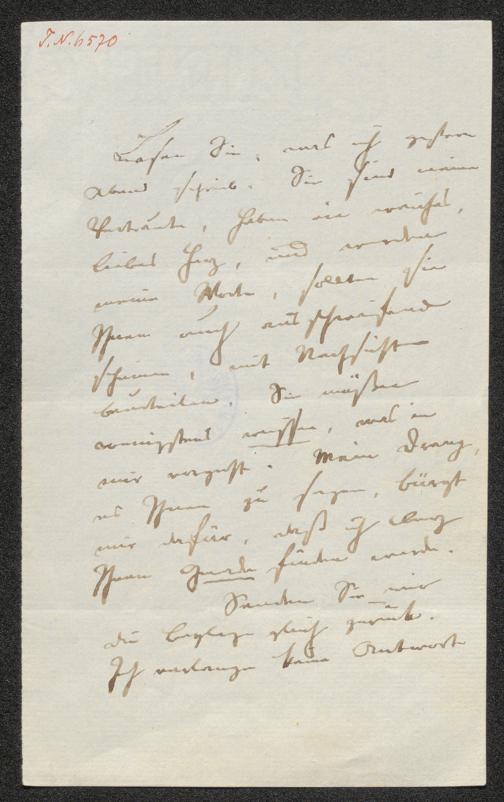 I.N. 6570
Lesen Sie, was ich gestern
Abend schrieb. Sie sind meine
Vertraute, haben ein weiches,
liebes Herz, und werden
meine Worte, sollten sie
Ihnen auch ausschweifend
scheinen, mit Nachsicht
beurteilen. Sie müßen
wenigstens wissen, was in
mir vorgeht. Mein Drang,
es Ihnen zu sagen, bürgt
mir dafür, daß ich bey
Ihnen Gnade finden werde.
Senden Sie mir
die Beylage gleich zurück.
Ich verlange keine Antwort